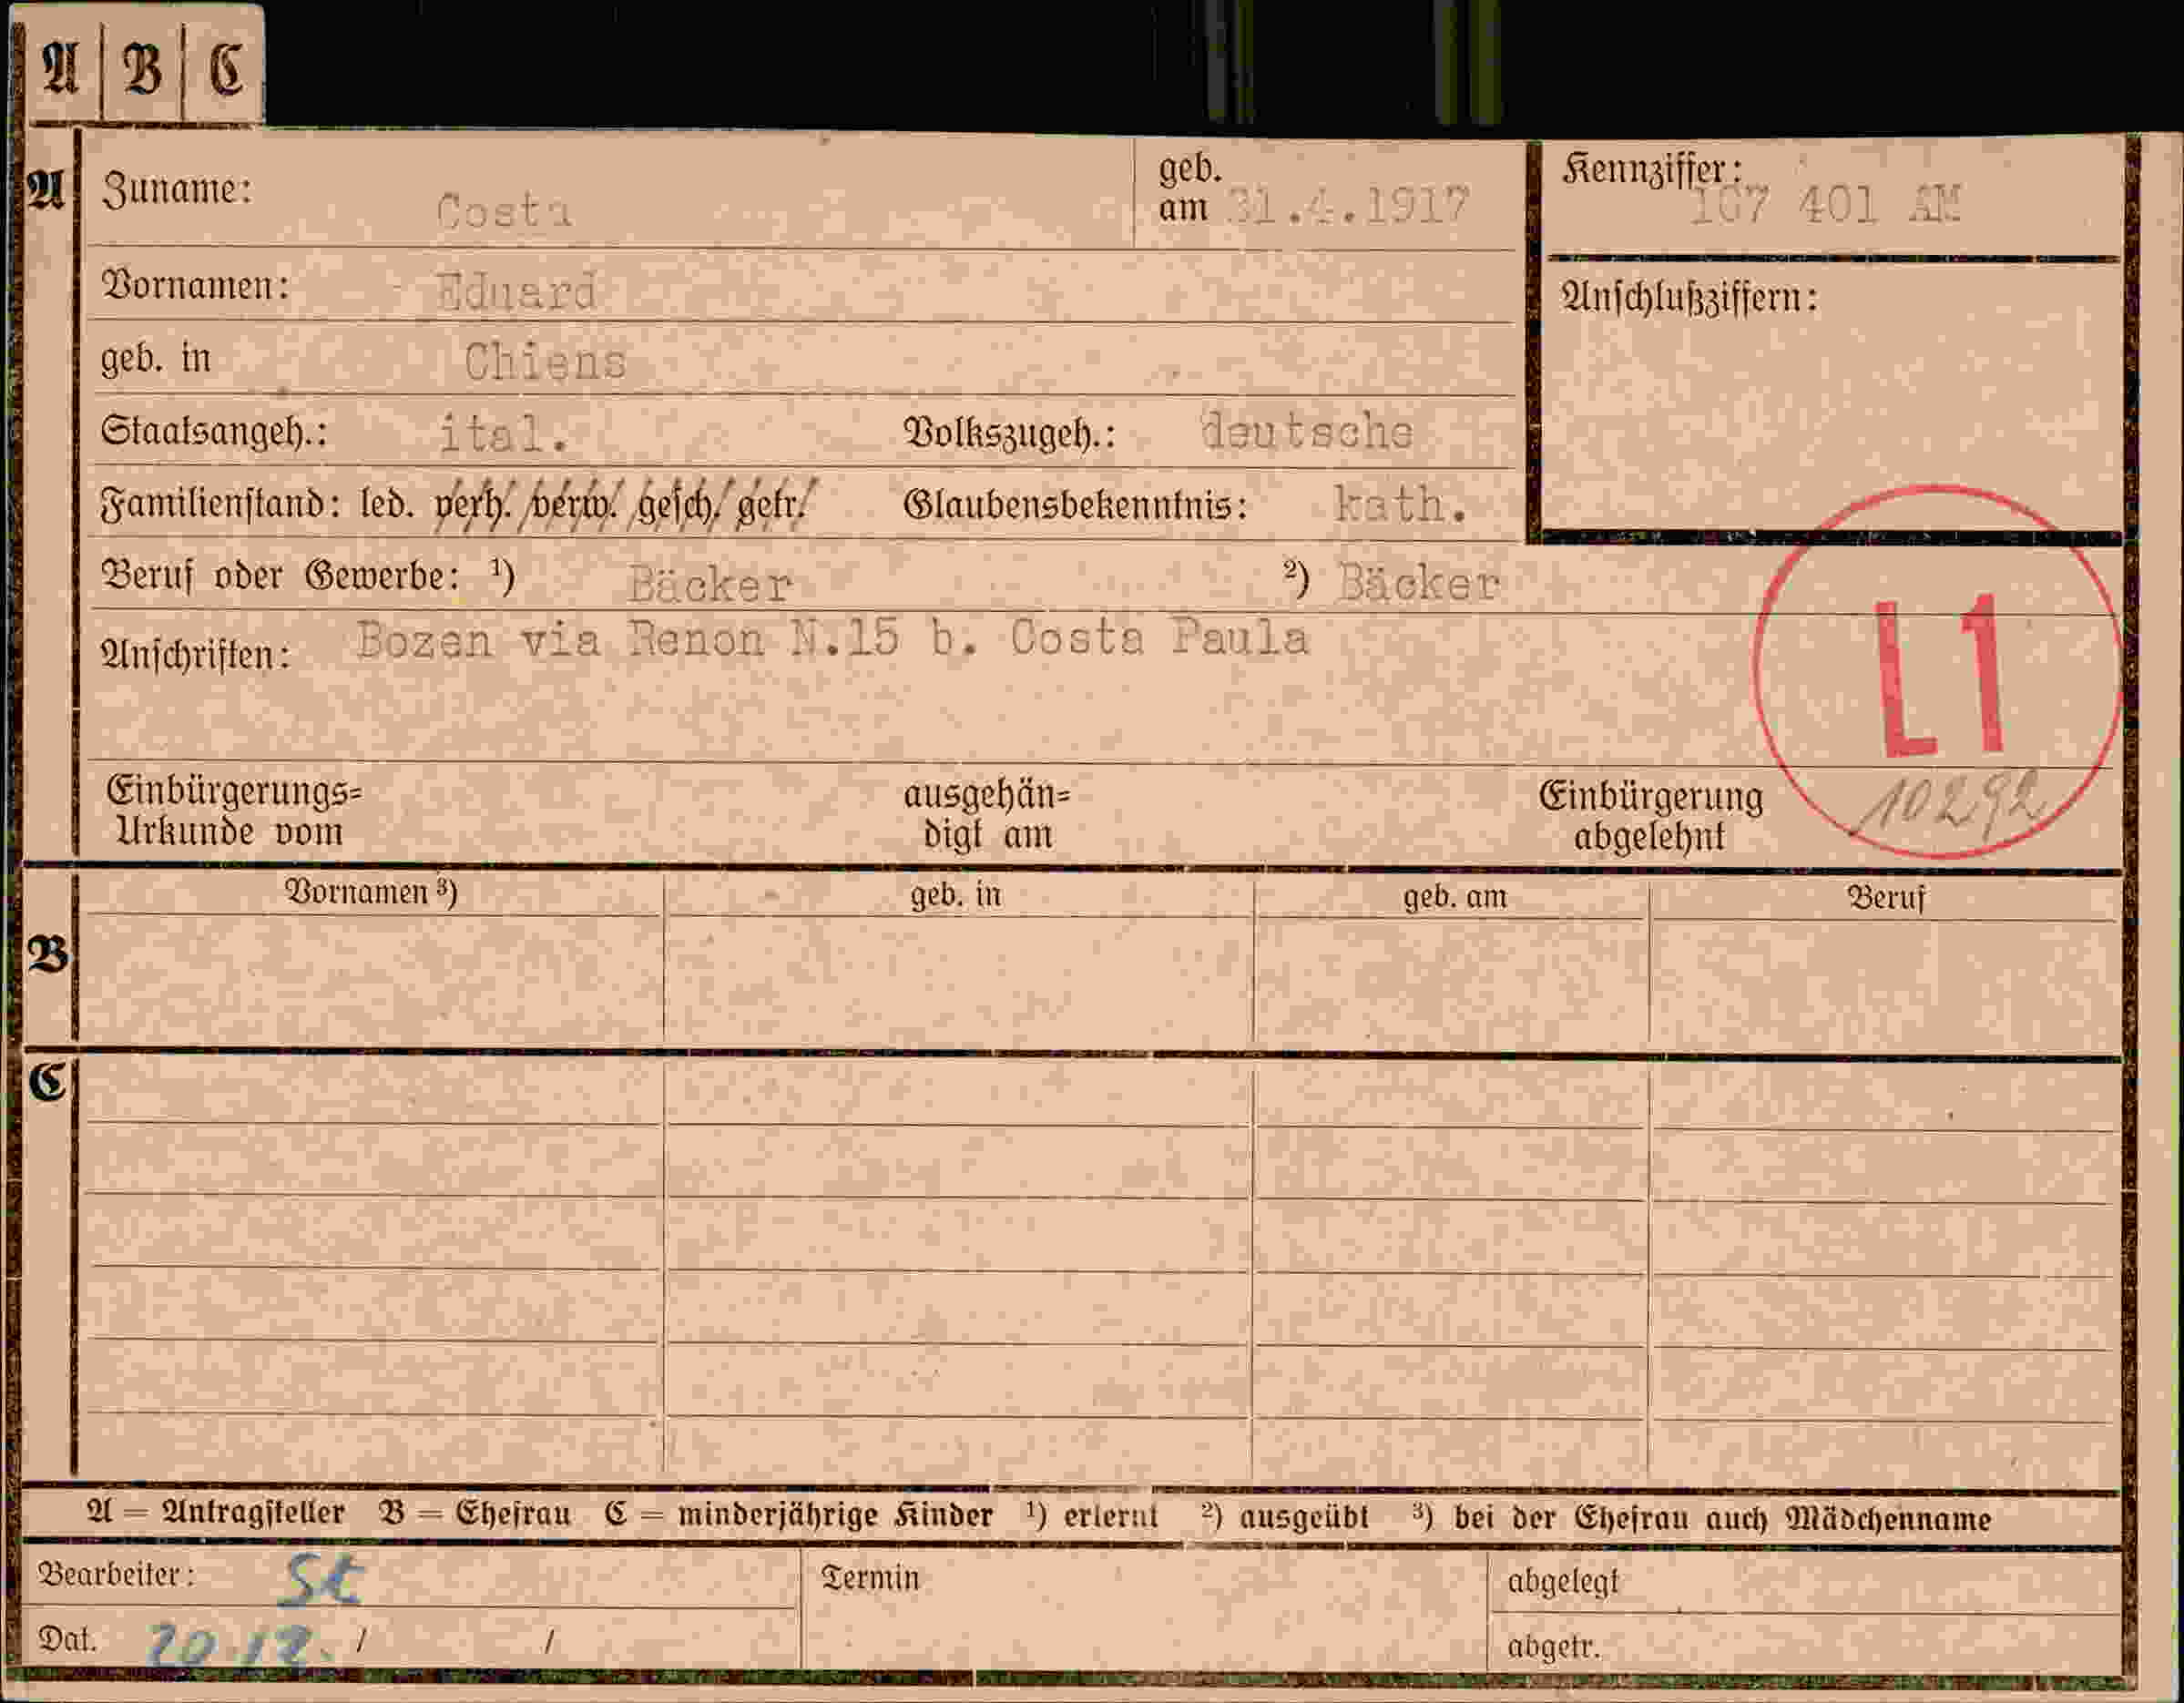 A | B | C
A Zuname: Costa geb. am 31.4.1917 Kennziffer: 167 401 AM
Vornamen: Eduard Anschlußziffern:
geb. in Chiens
Staatsangeh.: ital. Volkszugeh.: deutsche
Familienstand: led. verh. verw. gesch. getr. Glaubensbekenntnis: kath.
Beruf oder Gewerbe: ¹) Bäcker ²) Bäcker
Anschriften: Bozen via Renon N.15 b. Costa Paula
L1
Einbürgerungs= ausgehän= Einbürgerung 10292
Urkunde vom digt am abgelehnt
Vornamen ³) geb. in geb. am Beruf
B
C
A = Antragsteller B = Ehefrau C = minderjährige Kinder ¹) erlernt ²) ausgeübt ³) bei der Ehefrau auch Mädchenname
Bearbeiter: St Termin abgelegt
Dat. 20.12. / / abgetr.